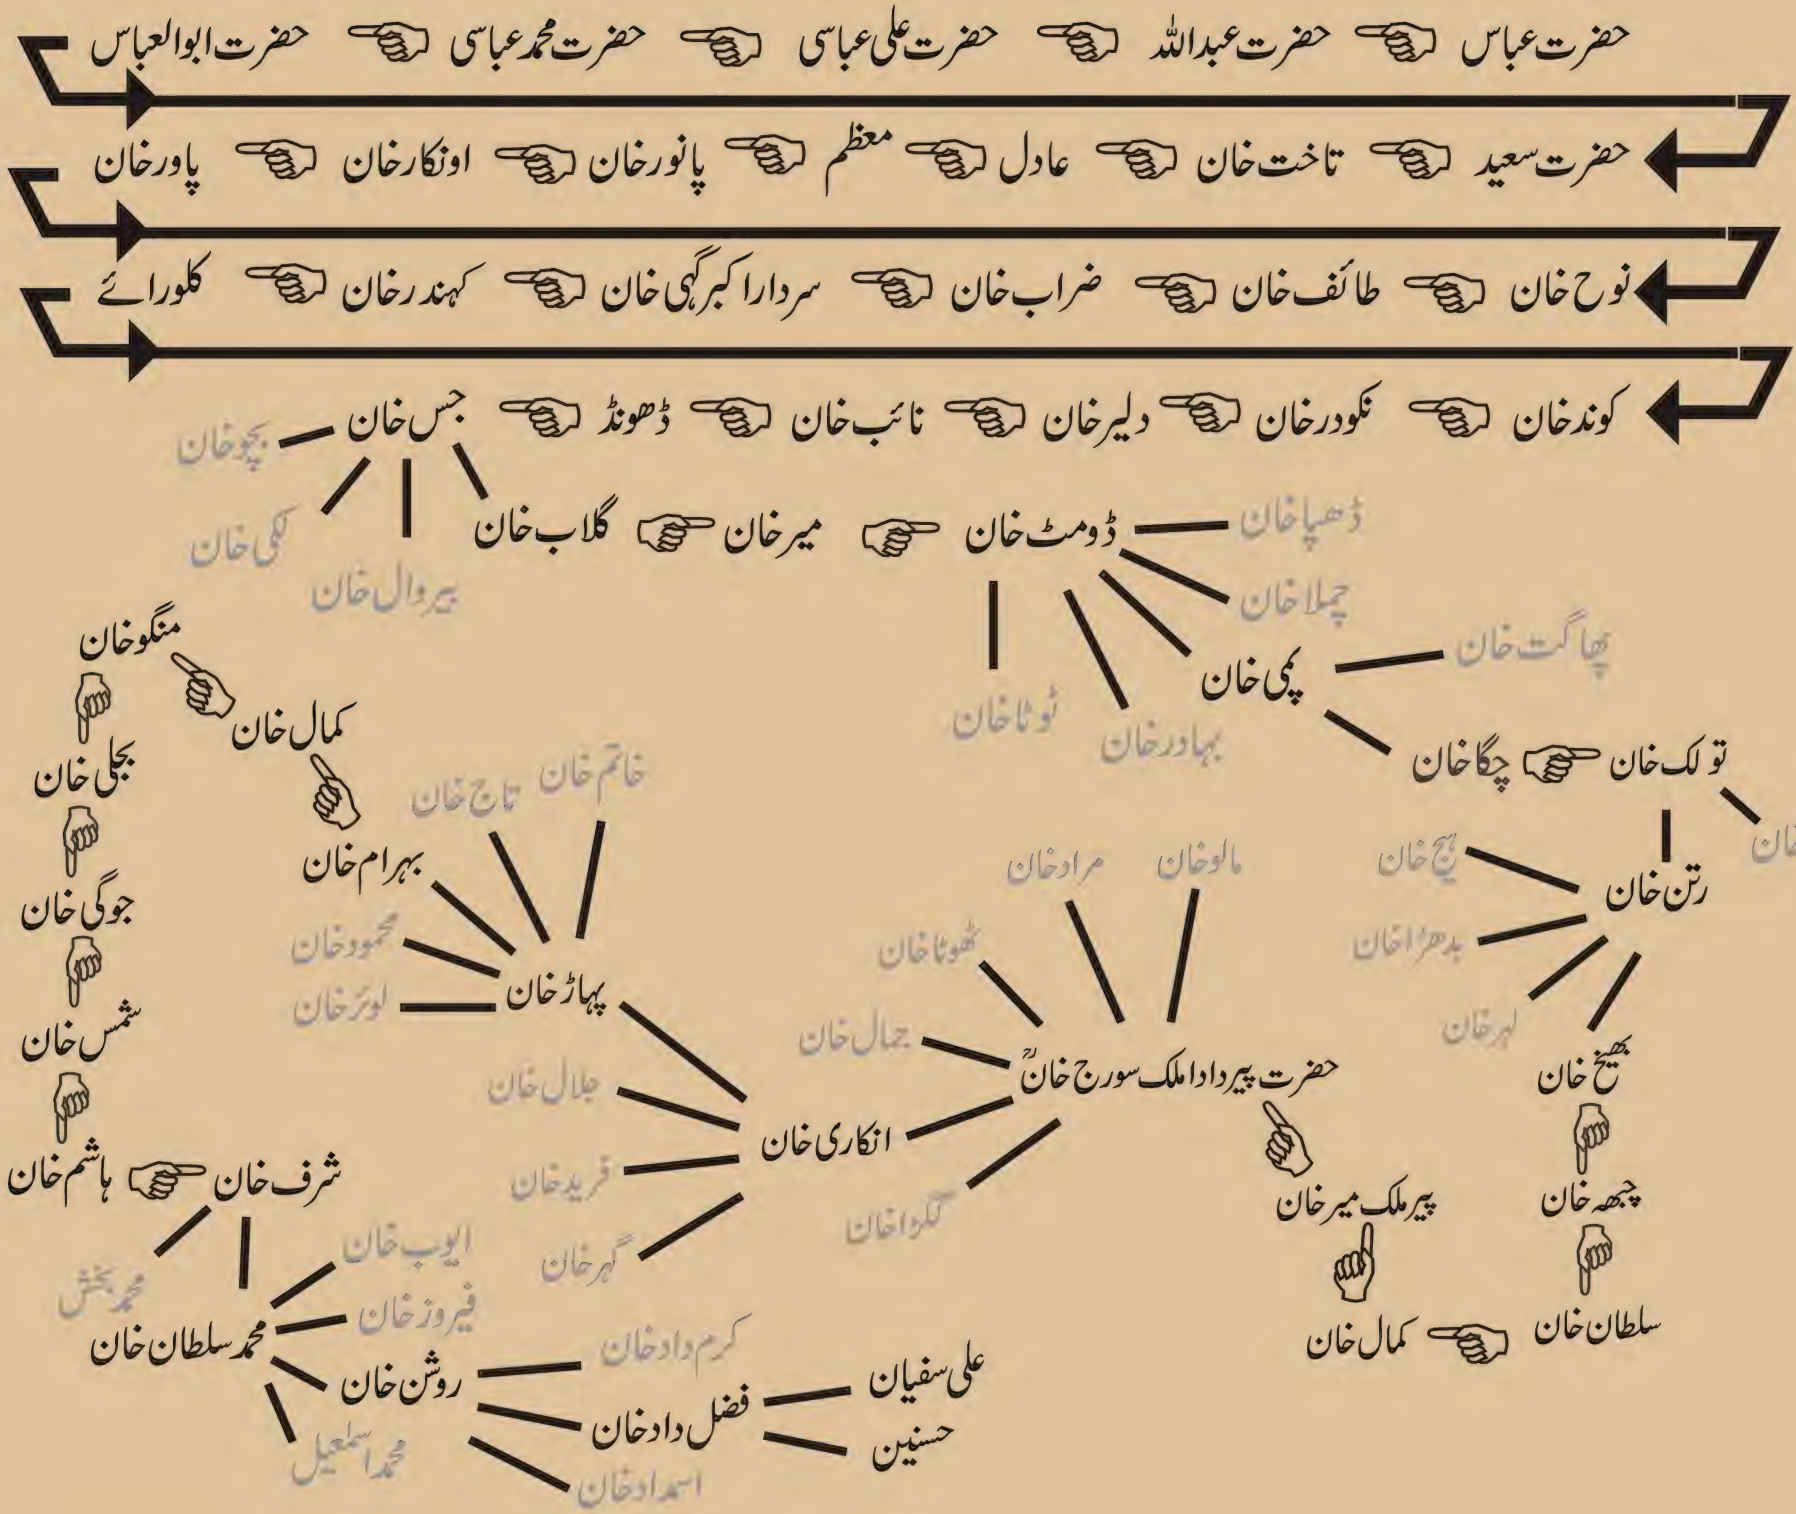 حضرت عباس حضرت عبداللہ حضرت علی عباسی حضرت محمد عباسی حضرت ابوالعباس
حضرت سعید تاخت خان عادل معظم پانور خان اونکار خان پاور خان
نوح خان طائف خان ضراب خان سردار اکبر گہی خان کہندر خان کلورائے
کوند خان نکودر خان دلیر خان نائب خان ڈھونڈ جس خان
بچو خان
لکھمی خان
بیروال خان
گلاب خان میر خان ڈومٹ خان
ڈھپا خان
چملا خان
پمی خان
بہادر خان
ٹوٹا خان
پھاگت خان
چگا خان تولک خان
خان
رتن خان
ہیج خان
بدھڑا خان
لہر خان
بھیخ خان
چبھہ خان
سلطان خان کمال خان
پیر ملک میر خان
حضرت پیر دادا ملک سورج خانؒ
مالو خان
مراد خان
ٹھوٹا خان
جمال خان
انکاری خان
ککڑا خان
پہاڑ خان
جلال خان
فرید خان
گہر خان
خاتم خان
تاج خان
بہرام خان
محمود خان
لوئر خان
کمال خان
منگو خان
بجلی خان
جوگی خان
شمس خان
ہاشم خان شرف خان
محمد بخش
محمد سلطان خان
ایوب خان
فیروز خان
روشن خان
محمد اسمٰعیل
کرم داد خان
فضل داد خان
اسمداد خان
علی سفیان
حسنین